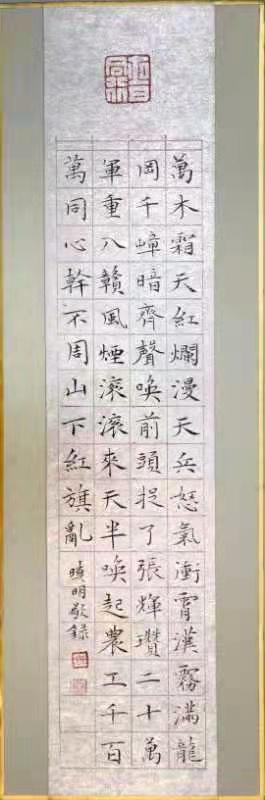 萬木霜天紅爛漫天兵怒氣衝霄漢霧滿龍
岡千嶂暗齊聲喚前頭捉了張輝瓚二十萬
軍重入贛風煙滾滾來天半喚起農工千百
萬同心幹不周山下紅旗亂
曉明敬錄